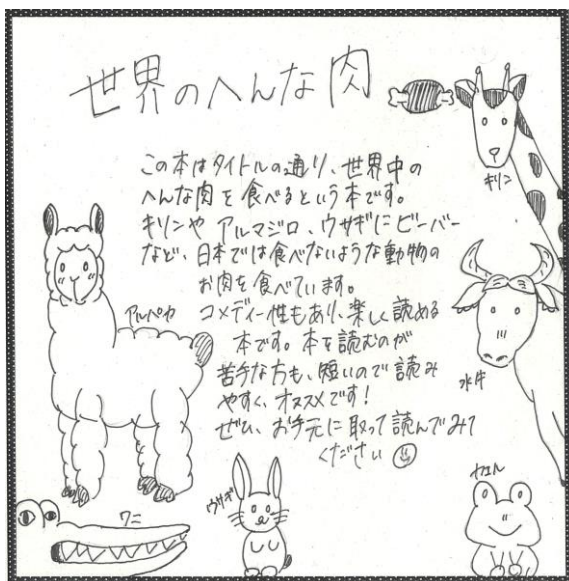 世界のへんな肉
この本はタイトルの通り、世界中の
へんな肉を食べるという本です。
キリンやアルマジロ、ウサギにビーバー
など、日本では食べないような動物の
お肉を食べています。
コメディー性もあり、楽しく読める
本です。本を読むのが
苦手な方も、短いので読み
やすく、オススメです!
ぜひ、お手元に取って読んでみて
ください
キリン
アルパカ
水牛
カエル
ウサギ
ワニ